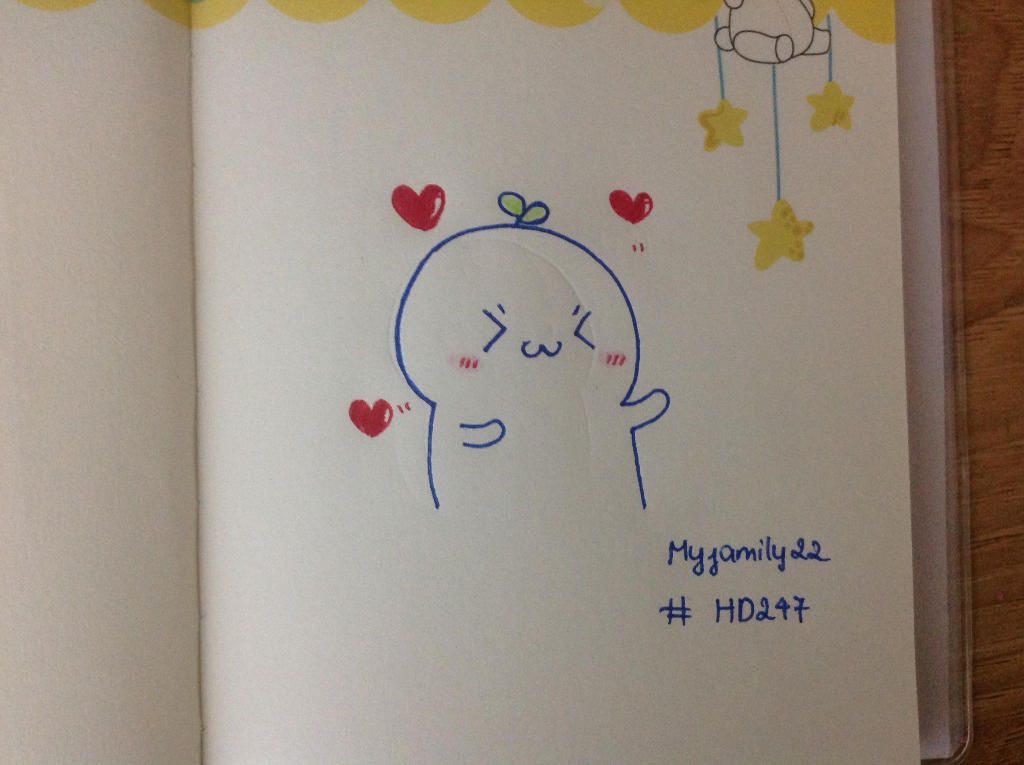 Myfamily22
# HD247